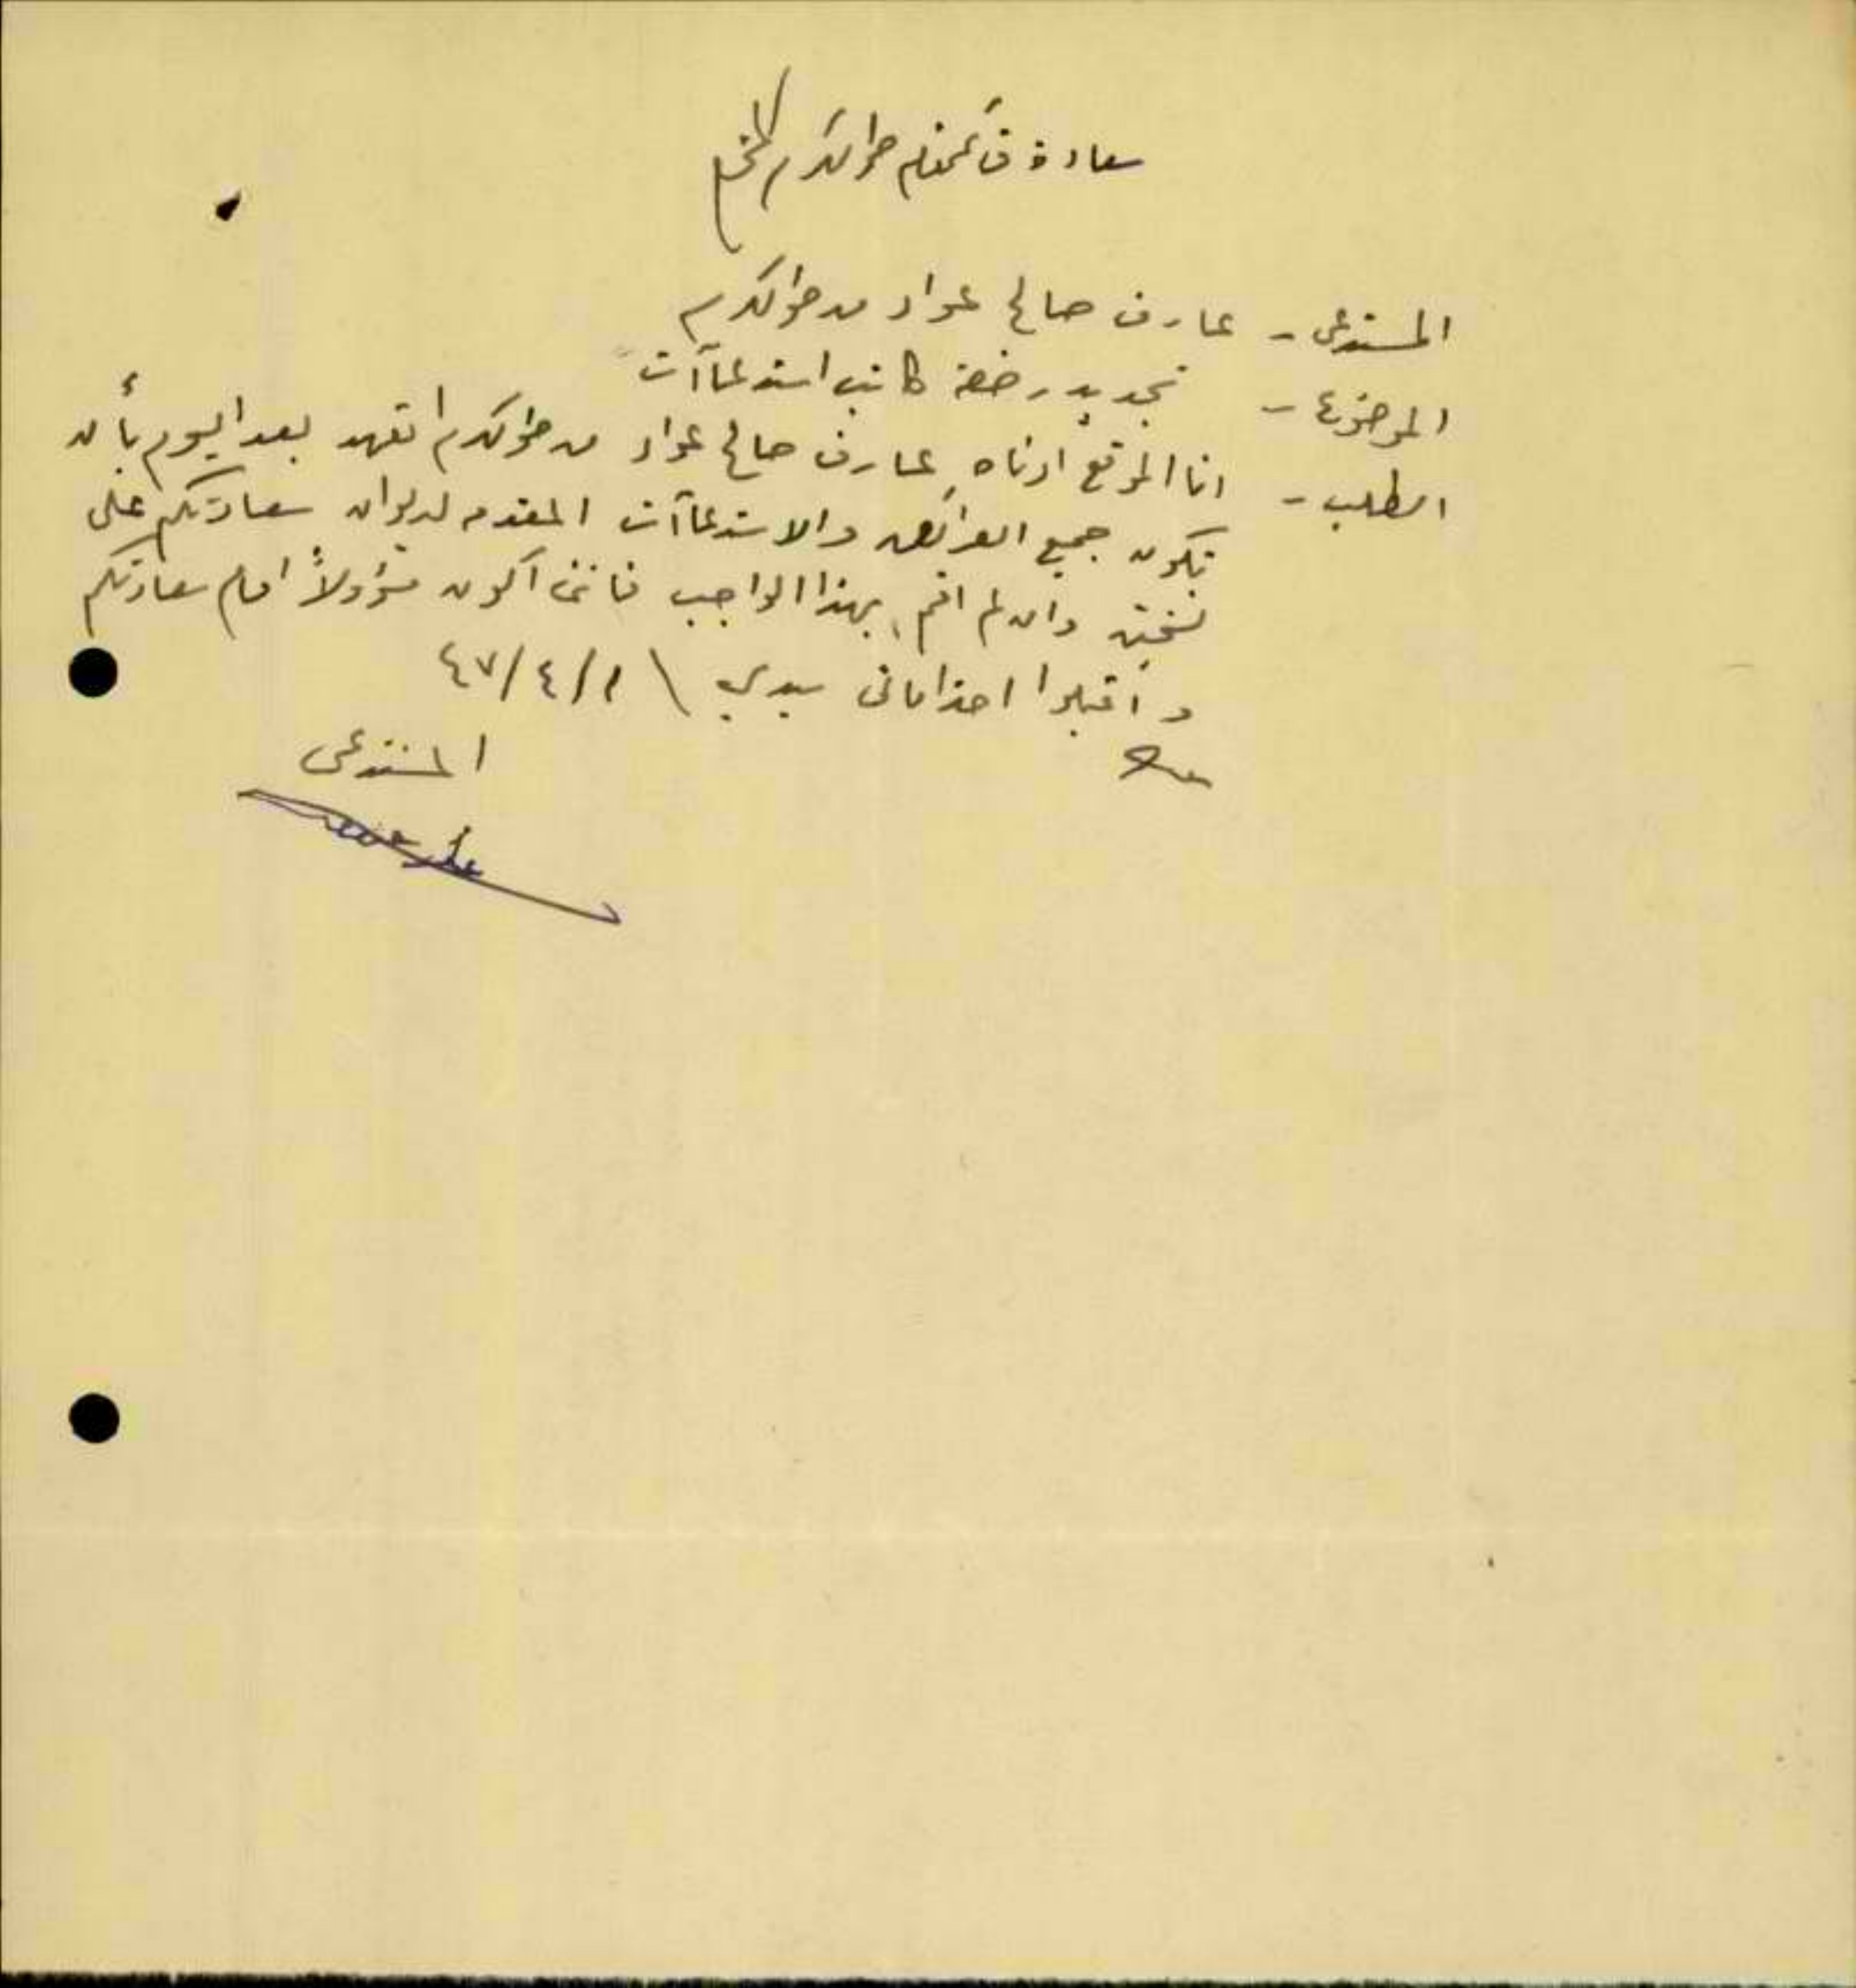 سعادة قائمقام طولكرم الأفخم
المستدعي - عارف صالح عواد من طولكرم
الموضوع - تجديد رخصة كاتب استدعاآت
الطلب - انا الموقع ادناه عارف صالح عواد من طولكرم اتعهد بعد اليوم بأن
تكون جميع العرائض والاستدعاآت المقدمه لديوان سعادتكم على
نسختين وان لم اقم بهذا الواجب فانني أكون مسؤولاً امام سعادتكم
وأقبلوا احتراماتي سيدي \ ١/٤/٤٧
المستدعي